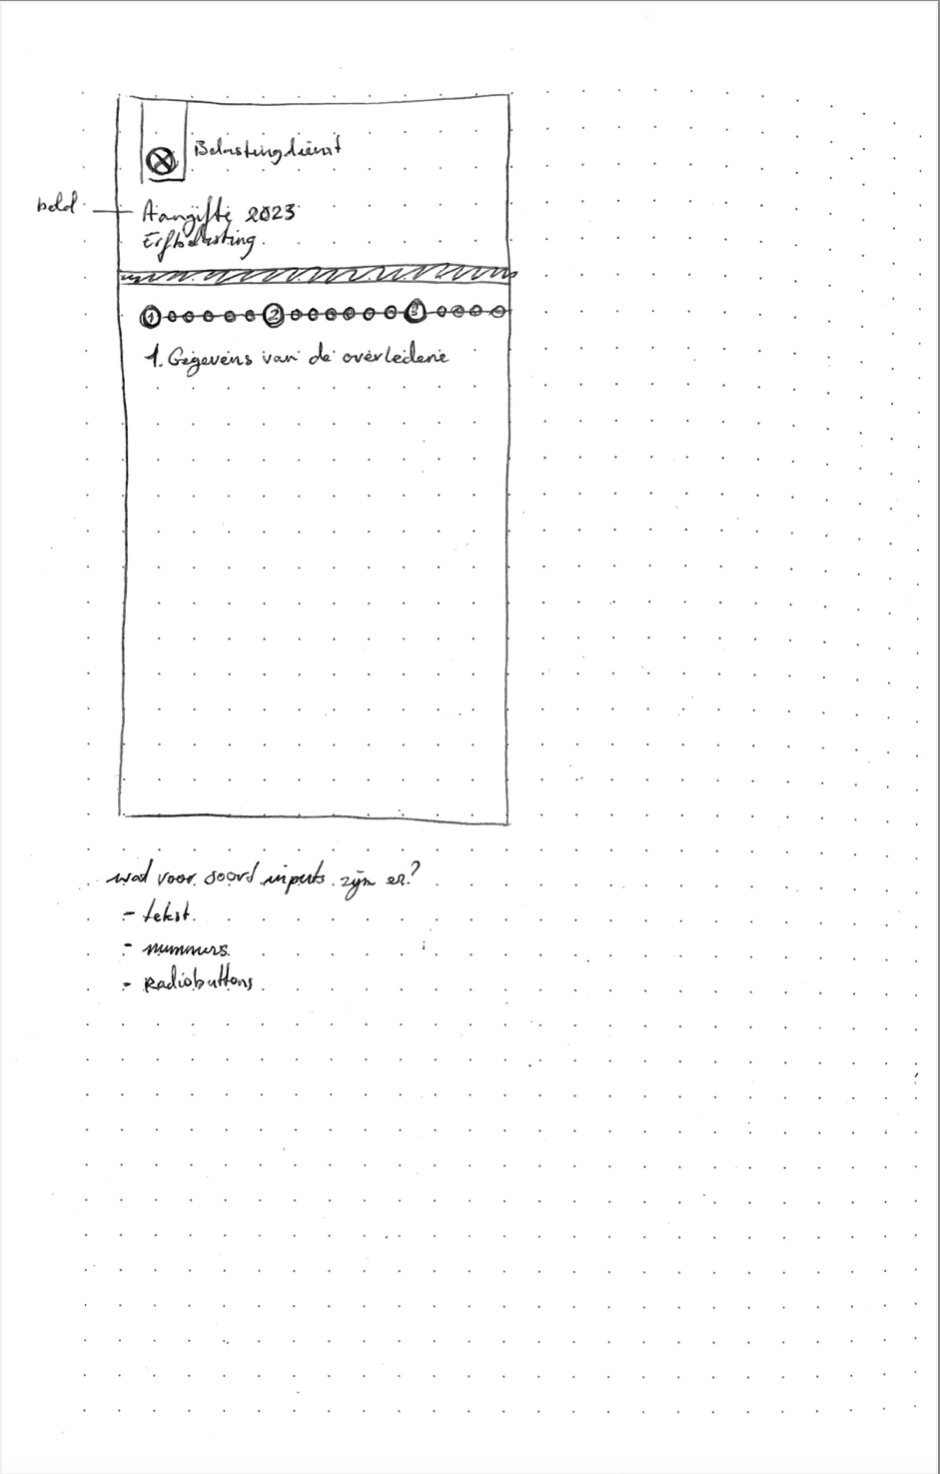 Belastingdienst
bold
Aangifte 2023
Erfbelasting.
1 2 3
1. Gegevens van de overledene
wat voor soort inputs zijn er?
- tekst.
- nummers.
- Radiobuttons.